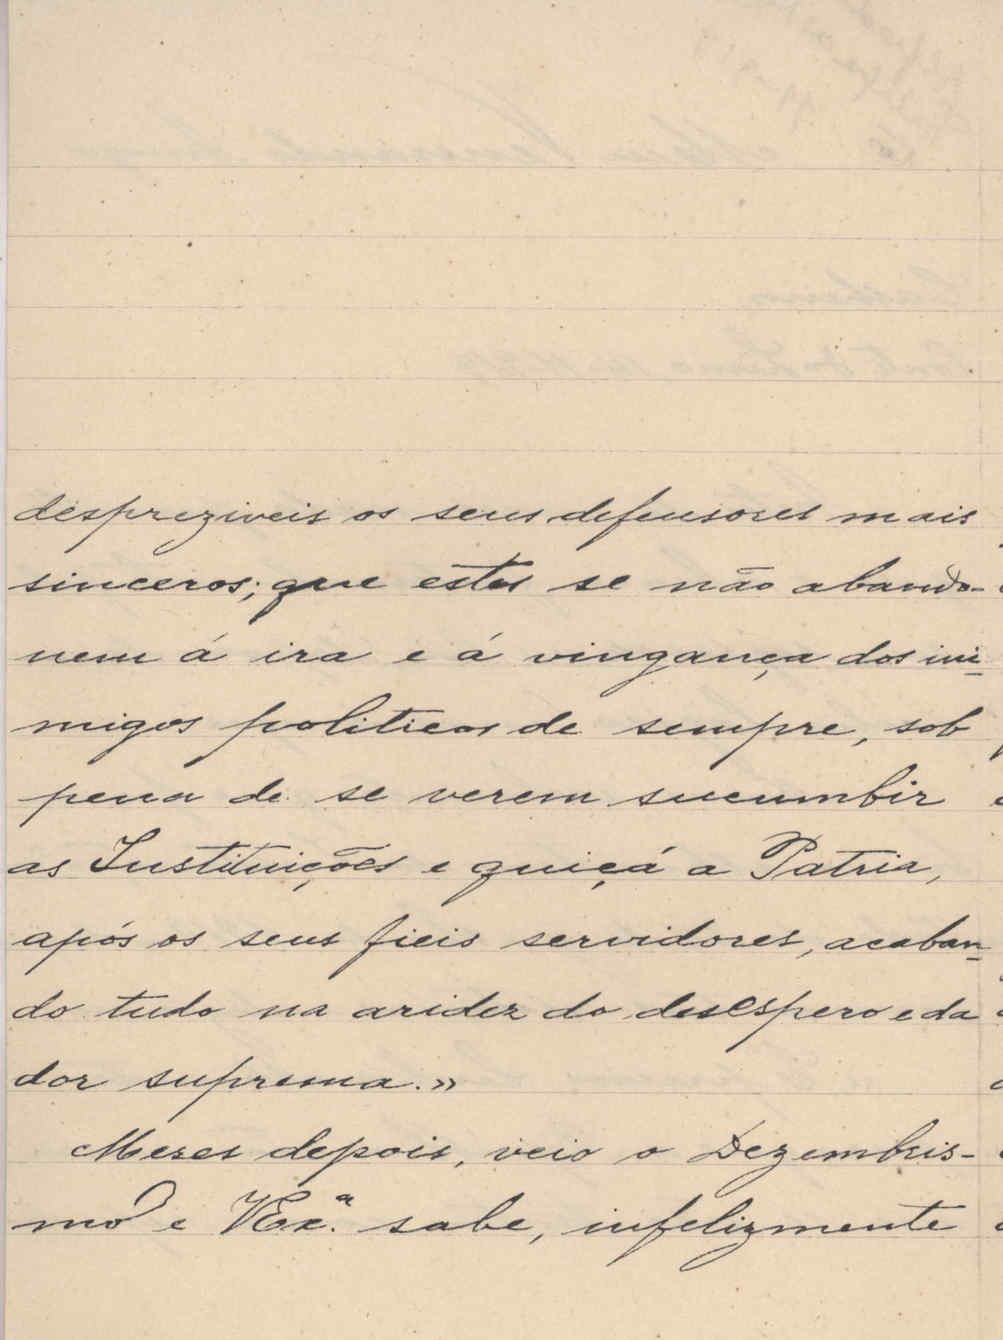 despreziveis os seus defensores mais
sinceros; que estes se não abando-
nem á ira e á vingança dos ini-
migos politicos de sempre, sob
pena de se verem sucumbir
as Instituições e quiçá a Patria,
após os seus fieis servidores, acaban-
do tudo na aridez do desespero e da
dor suprema.»
Meses depois, veio o Dezembris-
mo e V Ex.ª sabe, infelizmente